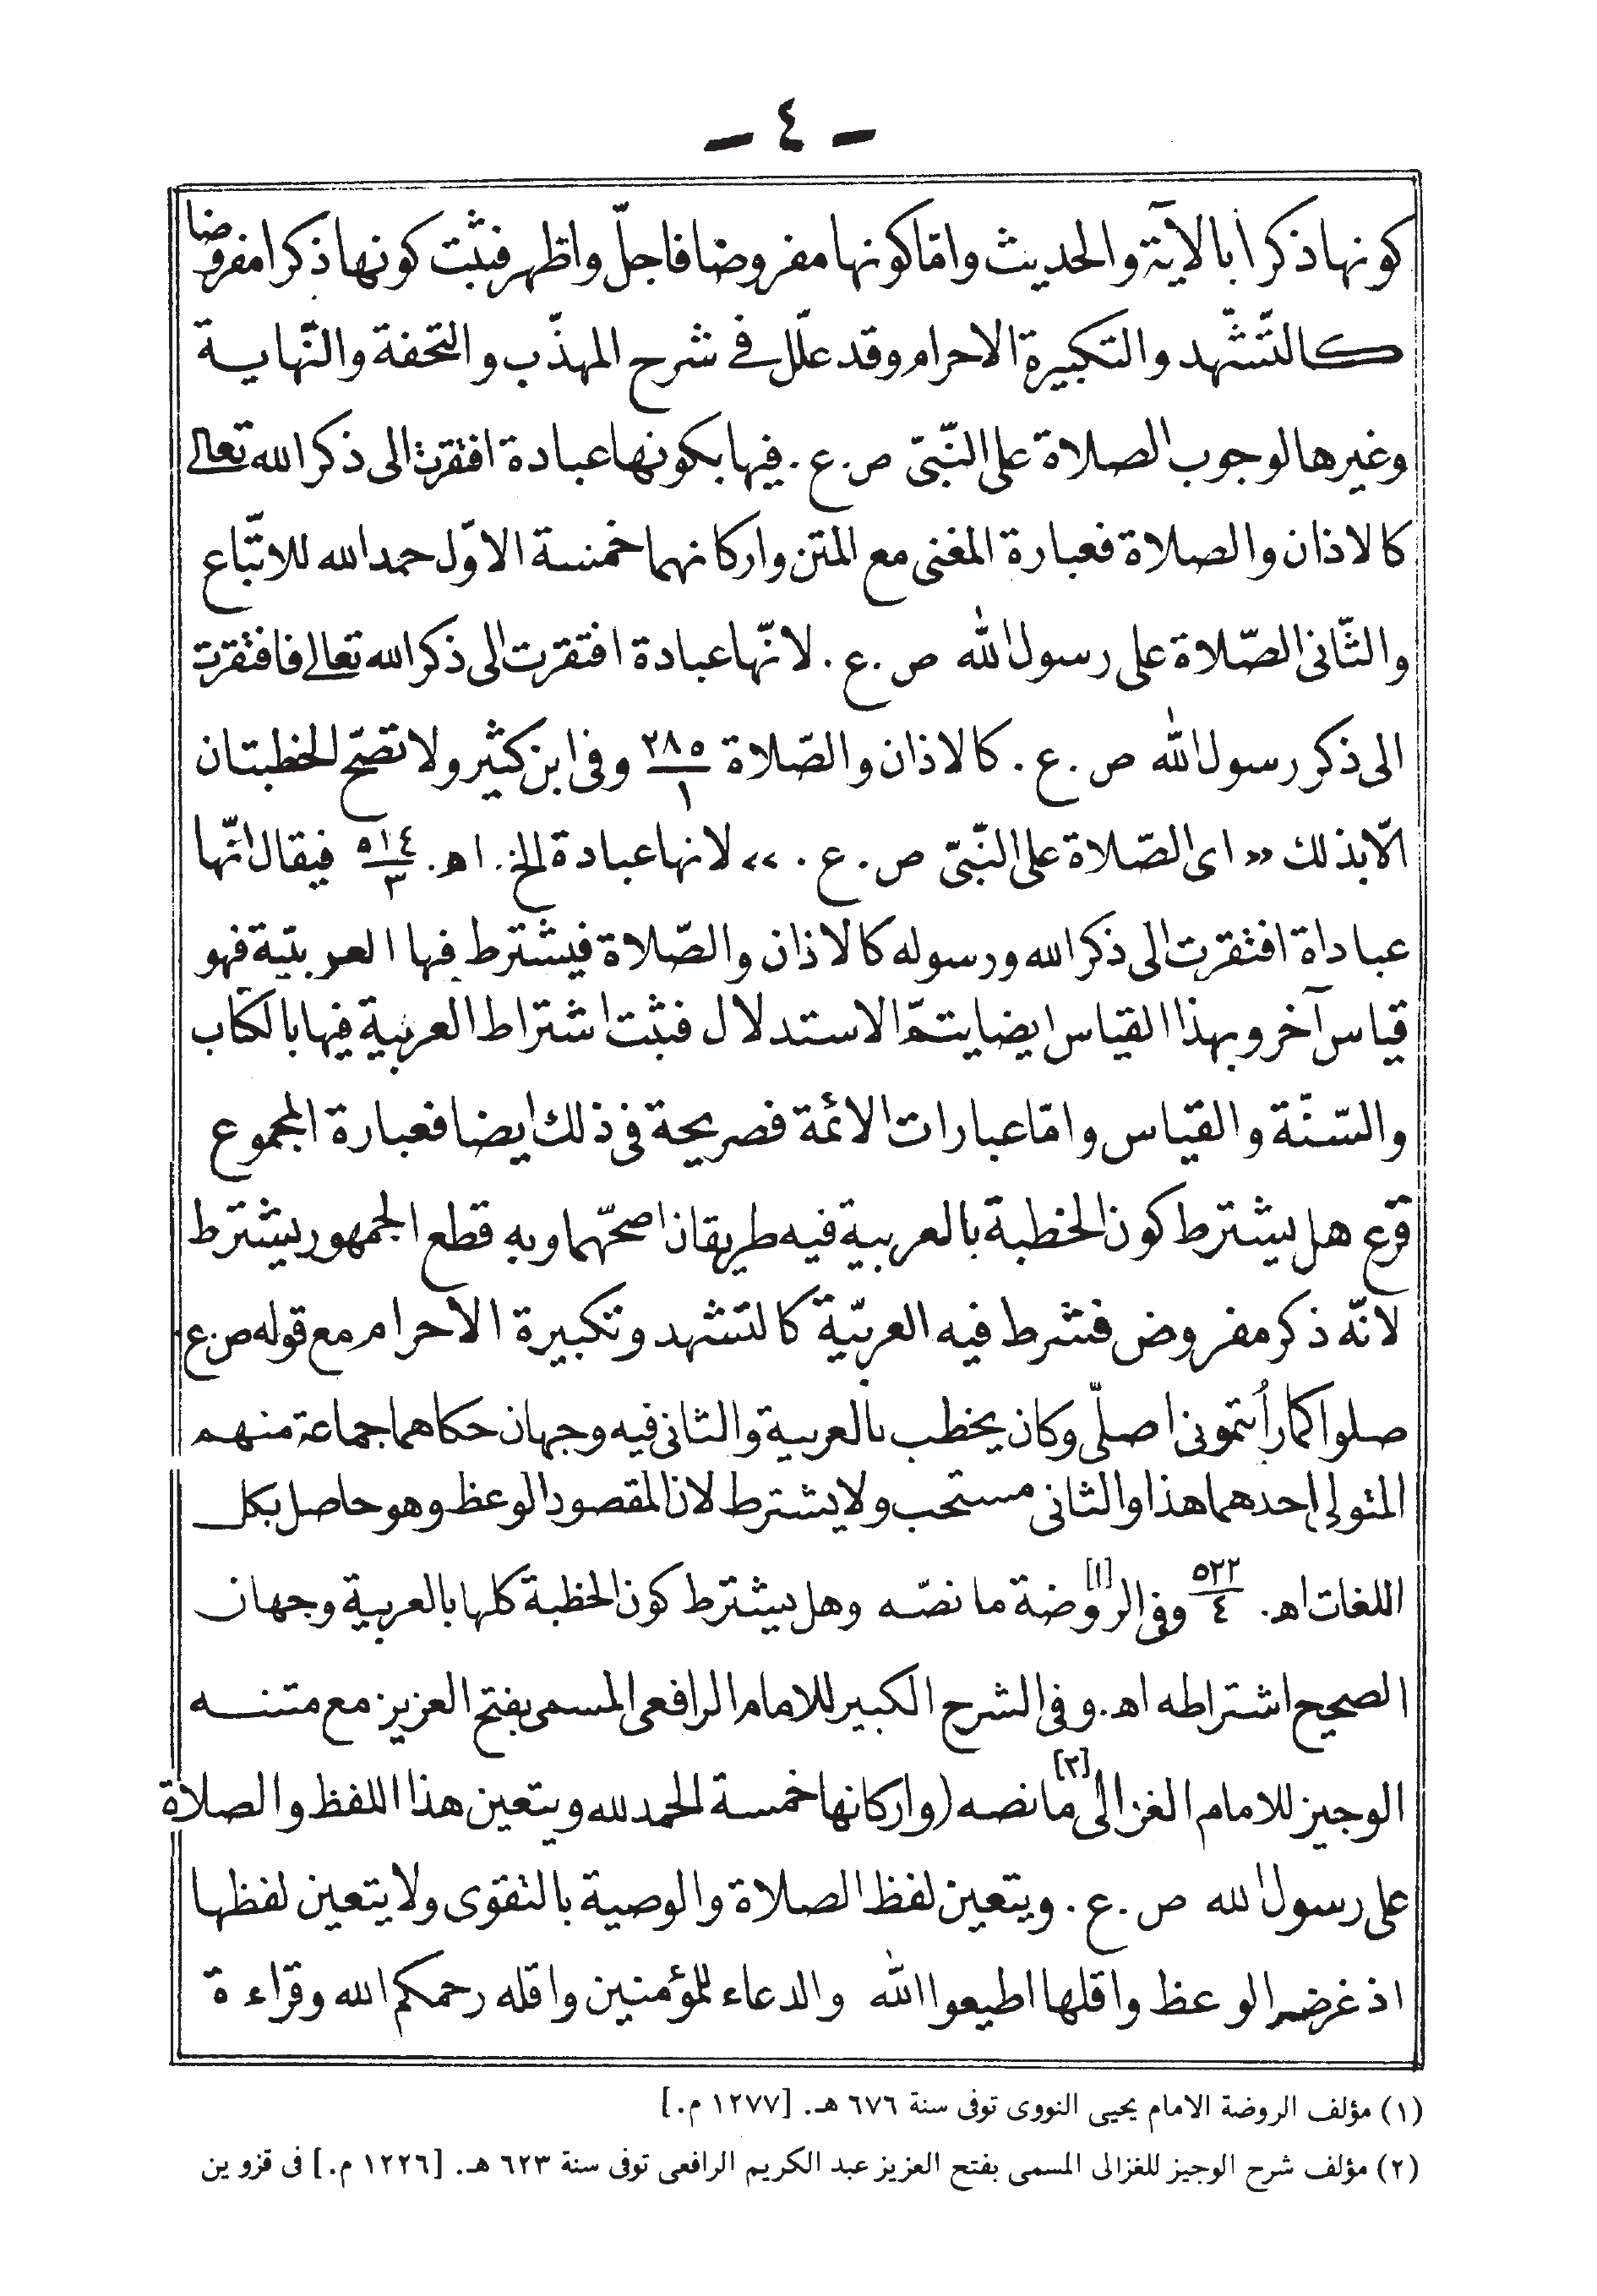 - ٤ -
كونها ذكرا بالآية والحديث وامّا كونها مفروضا فاجلّ واظهر فثبت كونها ذكرا مفروضا
كالتّشّهد والتكبيرة الاحرام وقد علّل فى شرح المهذّب والتحفة والنّهاية
وغيرها لوجوب الصلاة على النّبىّ ص.ع. فيها بكونها عبادة افتقرت الى ذكر الله تعالى
كالاذان والصلاة فعبارة المغنى مع المتن واركانهما خمسة الاوّل حمد الله للاتّباع
والثّانى الصّلاة على رسول الله ص.ع. لانّها عبادة افتقرت الى ذكر الله تعالى فافتقرت
الى ذكر رسول الله ص.ع. كالاذان والصّلاة ٢٨٥/١ وفى ابن كثير ولا تصحّ الخطبتان
الّا بذلك «اى الصّلاة على النّبىّ ص.ع.» لانها عبادة الخ. اهـ. ٥١٤/٣ فيقال انّها
عباداة افتقرت الى ذكر الله ورسوله كالاذان والصّلاة فيشترط فيها العربيّة فهو
قياس آخر وبهذا القياس ايضا يتمّ الاستدلال فثبت اشتراط العربية فيها بالكتاب
والسّنّة والقياس وامّا عبارات الائمة فصريحة فى ذلك ايضا فعبارة المجموع
فرع هل يشترط كون الخطبة بالعربية فيه طريقان اصحّهما وبه قطع الجمهور يشترط
لانّه ذكر مفروض فشرط فيه العربيّة كالتشهد وتكبيرة الاحرام مع قوله ص.ع
صلوا كما رأيتمونى اصلّى وكان يخطب بالعربية والثانى فيه وجهان حكاهما جماعة منهم
المتولى احدهما هذا والثانى مستحب ولا يشترط لان المقصود الوعظ وهو حاصل بكل
اللغات اهـ. ٥٢٢/٤ وفى الروضة [١] ما نصّه وهل يشترط كون الخطبة كلها بالعربية وجهان
الصحيح اشتراطه اهـ. وفى الشرح الكبير للامام الرافعى المسمى بفتح العزيز مع متنه
الوجيز للامام الغزالى [٢] ما نصه (واركانها خمسة الحمد لله ويتعين هذا اللفظ والصلاة
على رسول الله ص.ع. ويتعين لفظ الصلاة والوصية بالتقوى ولا يتعين لفظها
اذ غرضه الوعظ واقلها اطيعوا الله والدعاء للمؤمنين واقله رحمكم الله وقراءة
(١) مؤلف الروضة الامام يحيى النووى توفى سنة ٦٧٦ هـ. [١٢٧٧ م.]
(٢) مؤلف شرح الوجيز للغزالى المسمى بفتح العزيز عبد الكريم الرافعى توفى سنة ٦٢٣ هـ. [١٢٢٦ م.] فى قزوين